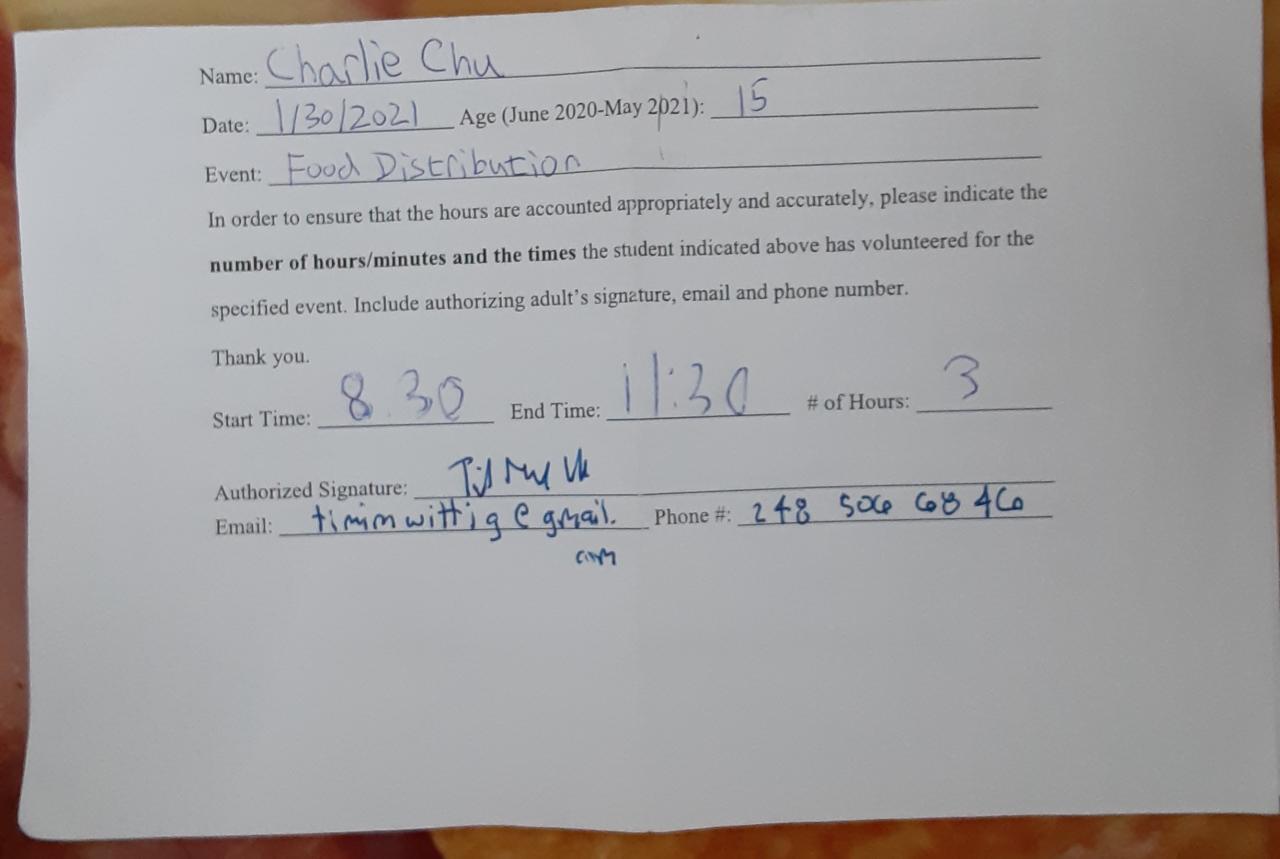 Name: Charlie Chu
Date: 1/30/2021 Age (June 2020-May 2021): 15
Event: Food Distribution
In order to ensure that the hours are accounted appropriately and accurately, please indicate the
number of hours/minutes and the times the student indicated above has volunteered for the
specified event. Include authorizing adult's signature, email and phone number.
Thank you.
Start Time: 8 30 End Time: 11:30 # of Hours: 3
Authorized Signature:
Email: timmwittig@gmail. Phone #: 248 506 6846
com